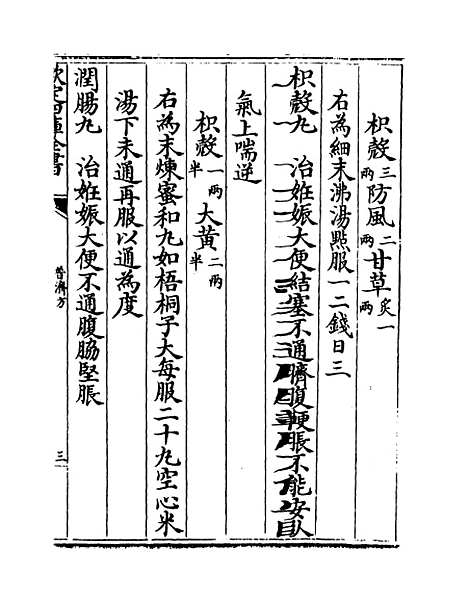 枳殻三兩防風二兩甘草炙一兩
右為細末沸湯㸃服一二錢日三
枳殻丸　治姙娠大便結塞不通臍腹硬脹不能安臥
氣上喘逆
枳殻一兩半大黄二兩半
右為末煉蜜和丸如梧桐子大每服二十丸空心米
湯下未通再服以通為度
潤腸丸　治姙娠大便不通腹脇堅脹
欽定四庫全書
普濟方
三